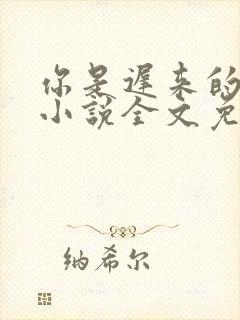 你是迟来的
小说全文免
纳希尔